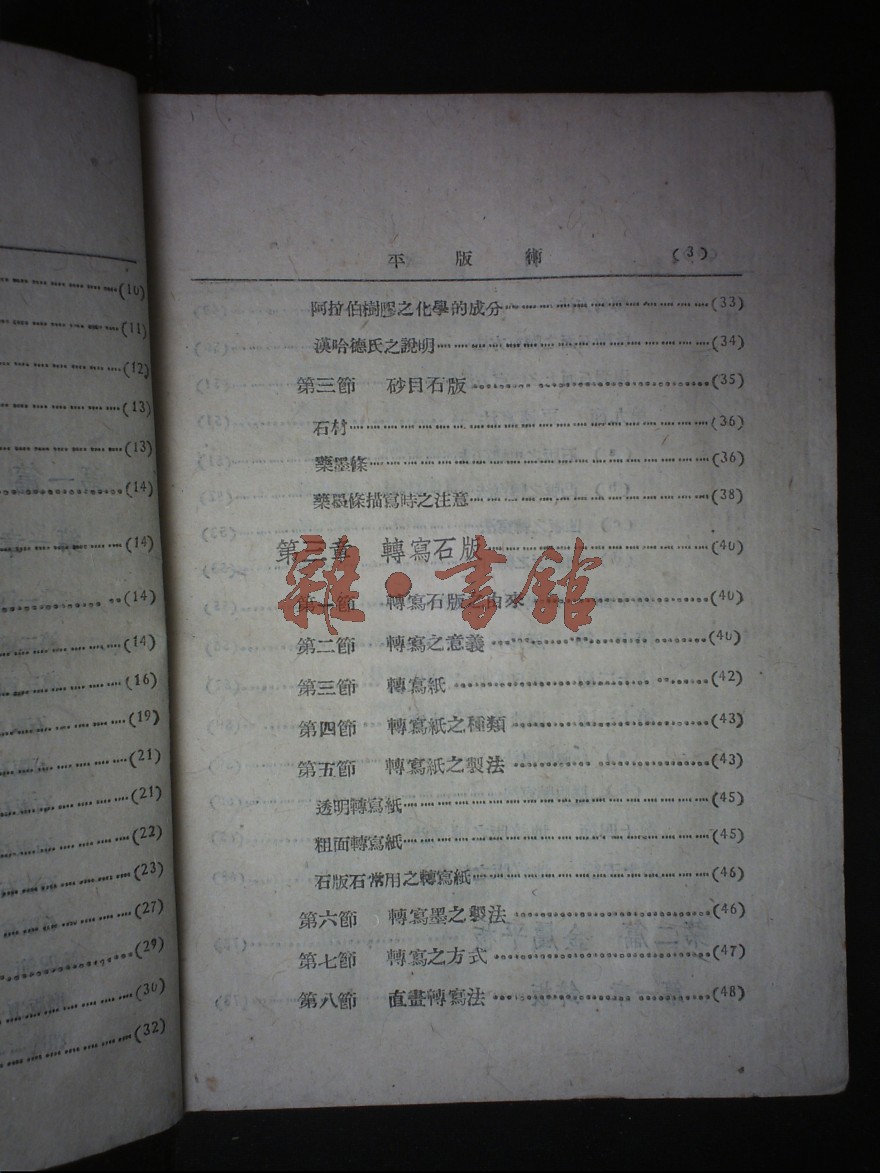 平版術 (3)
阿拉伯樹膠之化學的成分……(33)
漢哈德氏之說明……(34)
第三節 砂目石版……(35)
石材……(36)
藥墨條……(36)
藥墨條描寫時之注意……(38)
第三章 轉寫石版……(40)
第一節 轉寫石版之由來……(40)
第二節 轉寫之意義……(40)
第三節 轉寫紙……(42)
第四節 轉寫紙之種類……(43)
第五節 轉寫紙之製法……(43)
透明轉寫紙……(45)
粗面轉寫紙……(45)
石版石常用之轉寫紙……(46)
第六節 轉寫墨之製法……(46)
第七節 轉寫之方式……(47)
第八節 直畫轉寫法……(48)
雜·書館
(10)
(11)
(12)
(13)
(13)
(14)
(14)
(14)
(14)
(16)
(19)
(21)
(21)
(22)
(23)
(27)
(29)
(30)
(32)